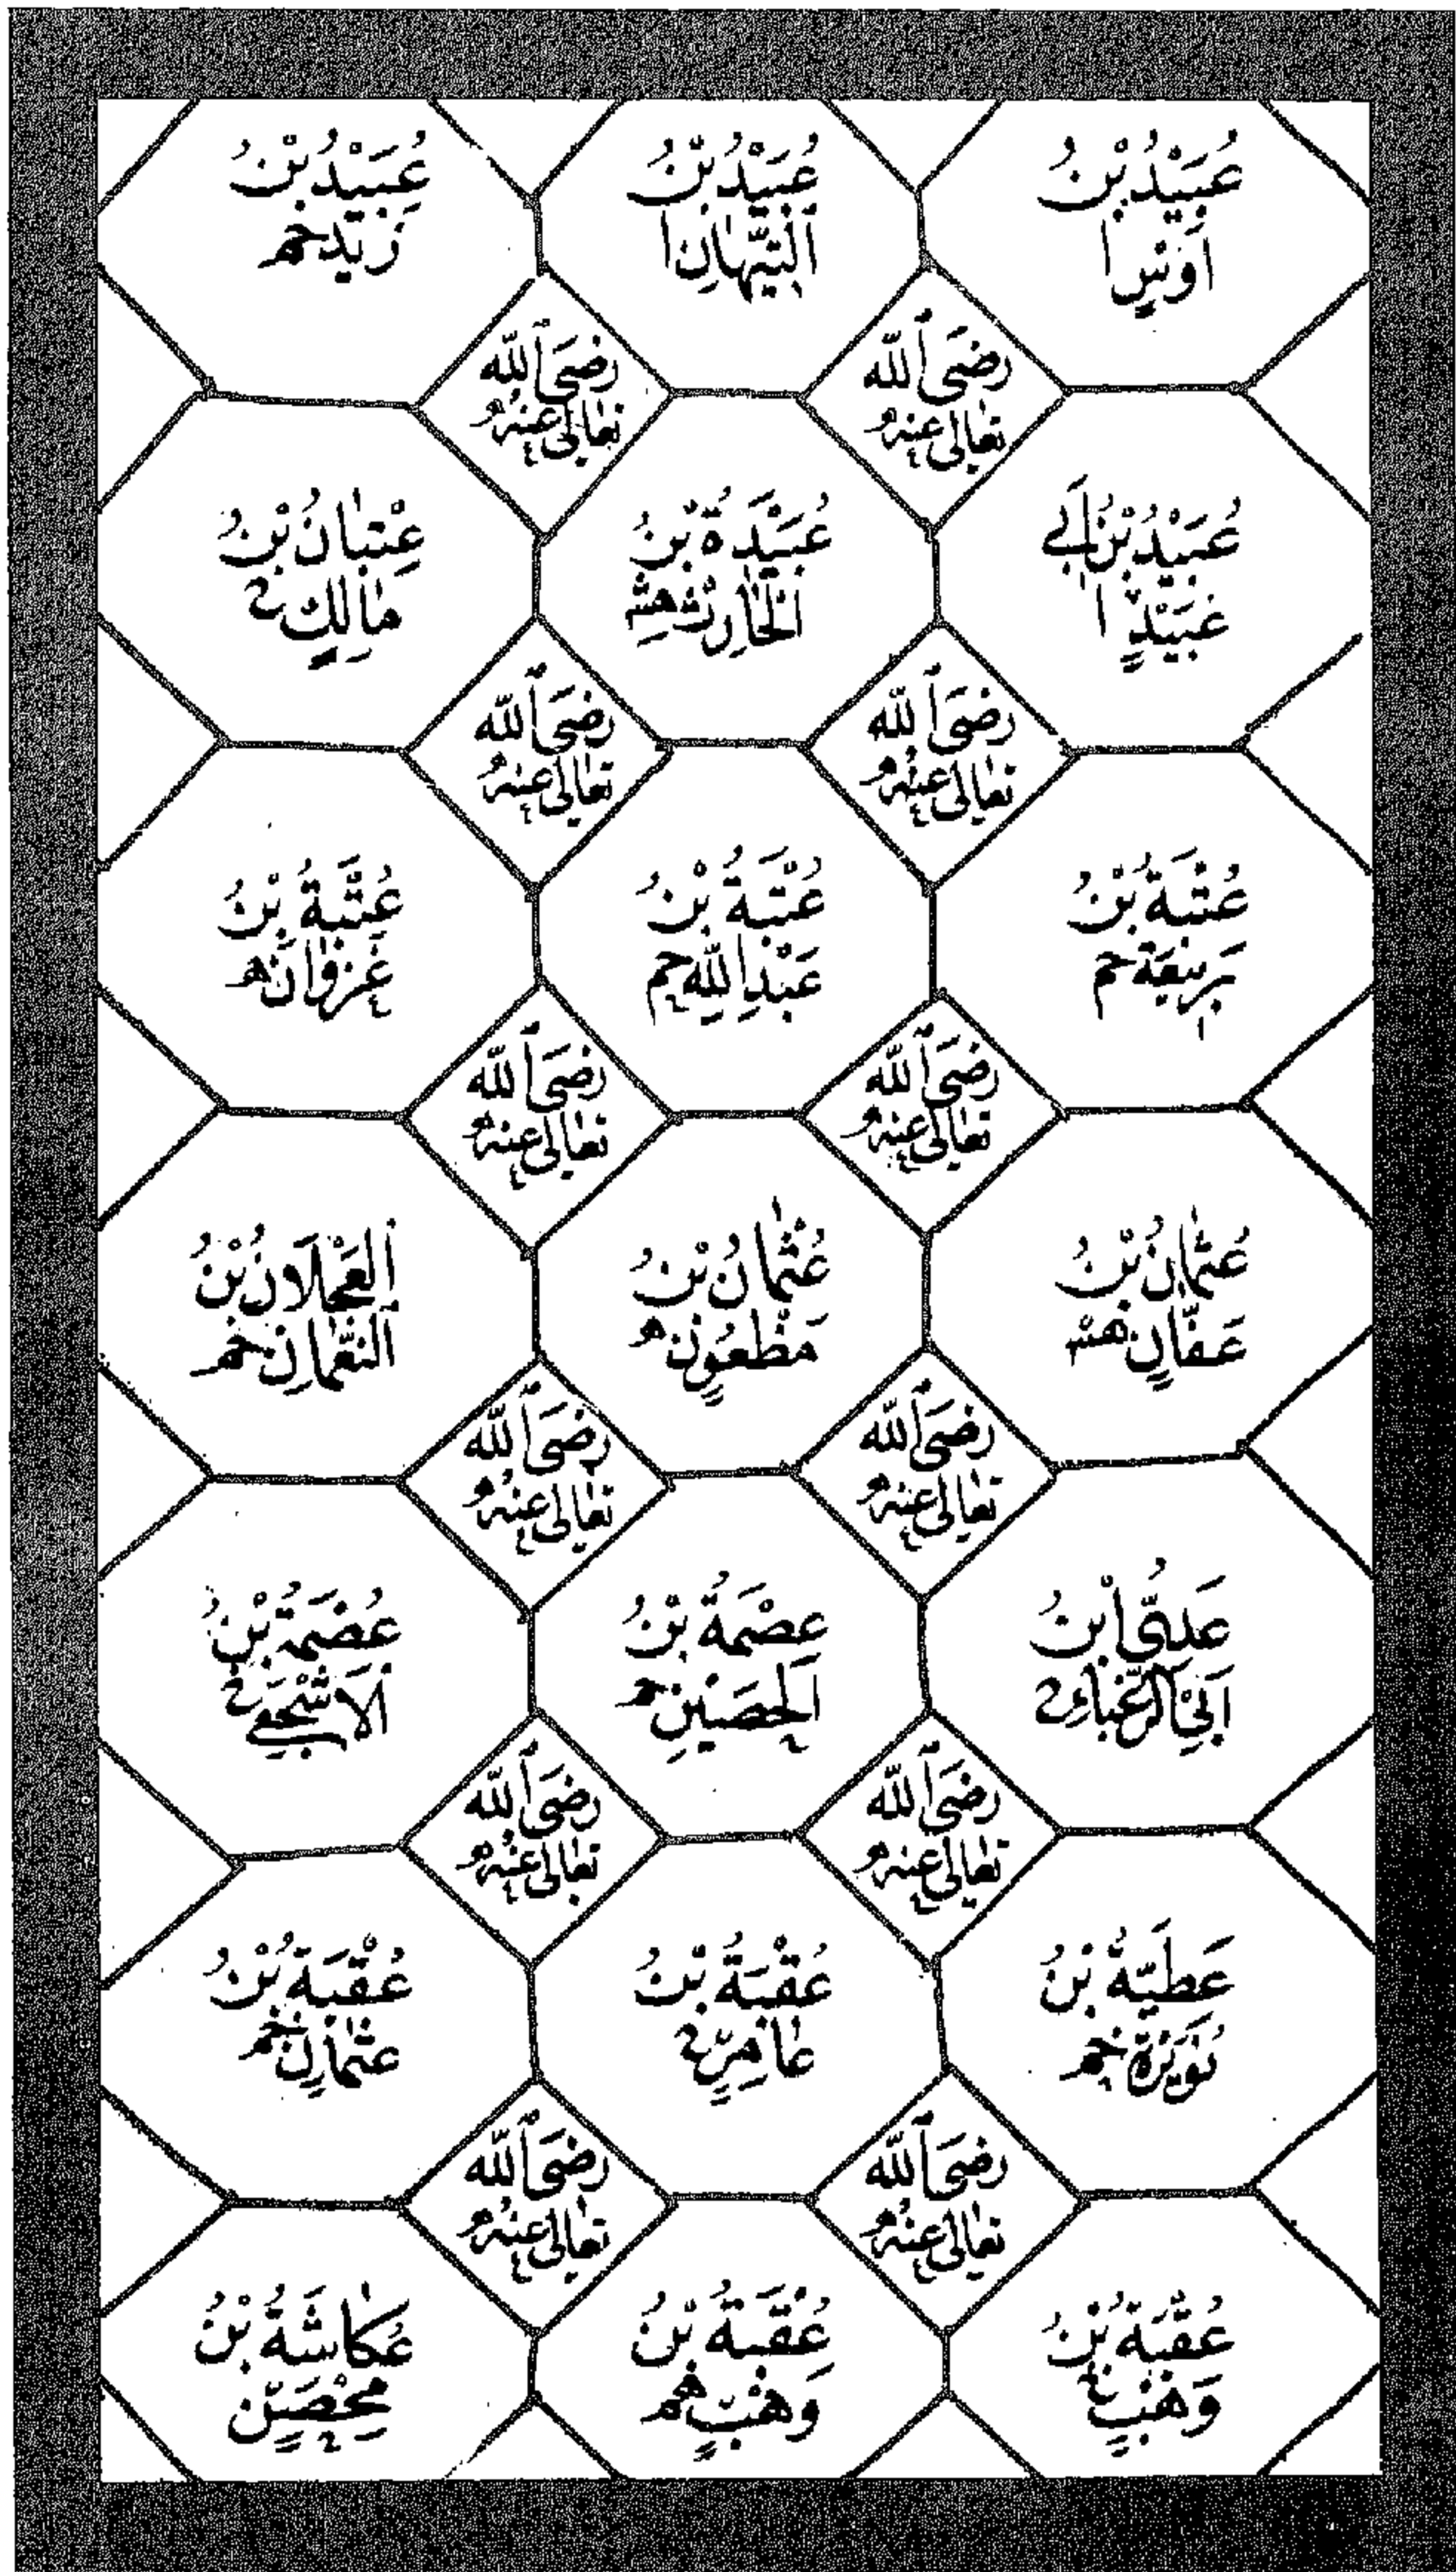 عُبَيْدُ بْنُ
اَوْسٍ ا
عُبَيْدُ بْنُ
ٱلتَّيِّهَانِ ا
عُبَيْدُ بْنُ
زَيْدٍ خم
رَضِىَ ٱللّٰه
تَعَالٰى عَنْهُ
رَضِىَ ٱللّٰه
تَعَالٰى عَنْهُ
عُبَيْدُ بْنُ اَبٖى
عُبَيْدٍ ا
عُبَيْدَةُ بْنُ
الْحَارِثِ هش
عِتْبَانُ بْنُ
مَالِكٍ
رَضِىَ ٱللّٰه
تَعَالٰى عَنْهُ
رَضِىَ ٱللّٰه
تَعَالٰى عَنْهُ
عُتْبَةُ بْنُ
رَبِيعَةَ خم
عُتْبَةُ بْنُ
عَبْدِاللّٰهِ خم
عُتْبَةُ بْنُ
غَزْوَانَ هم
رَضِىَ ٱللّٰه
تَعَالٰى عَنْهُ
رَضِىَ ٱللّٰه
تَعَالٰى عَنْهُ
عُثْمَانُ بْنُ
عَفَّانٍ هش
عُثْمَانُ بْنُ
مَظْعُونٍ هم
ٱلْعَجْلَانُ بْنُ
ٱلنُّعْمَانِ خم
رَضِىَ ٱللّٰه
تَعَالٰى عَنْهُ
رَضِىَ ٱللّٰه
تَعَالٰى عَنْهُ
عَدِىُّ ابْنُ
اَبِى الزَّغْبَاءِ
عِصْمَةُ بْنُ
الْحُصَيْنِ خم
عُصْمَةُ بْنُ
ٱلْاَشْجَعِى
رَضِىَ ٱللّٰه
تَعَالٰى عَنْهُ
رَضِىَ ٱللّٰه
تَعَالٰى عَنْهُ
عَطِيَّةُ بْنُ
نُوَيْرَةَ خم
عُقْبَةُ بْنُ
عَامِرٍ
عُقْبَةُ بْنُ
عُثْمَانَ خم
رَضِىَ ٱللّٰه
تَعَالٰى عَنْهُ
رَضِىَ ٱللّٰه
تَعَالٰى عَنْهُ
عُقْبَةُ بْنُ
وَهْبٍ
عُقْبَةُ بْنُ
وَهْبٍ هم
عُكَاشَةُ بْنُ
مِحْصَنٍ